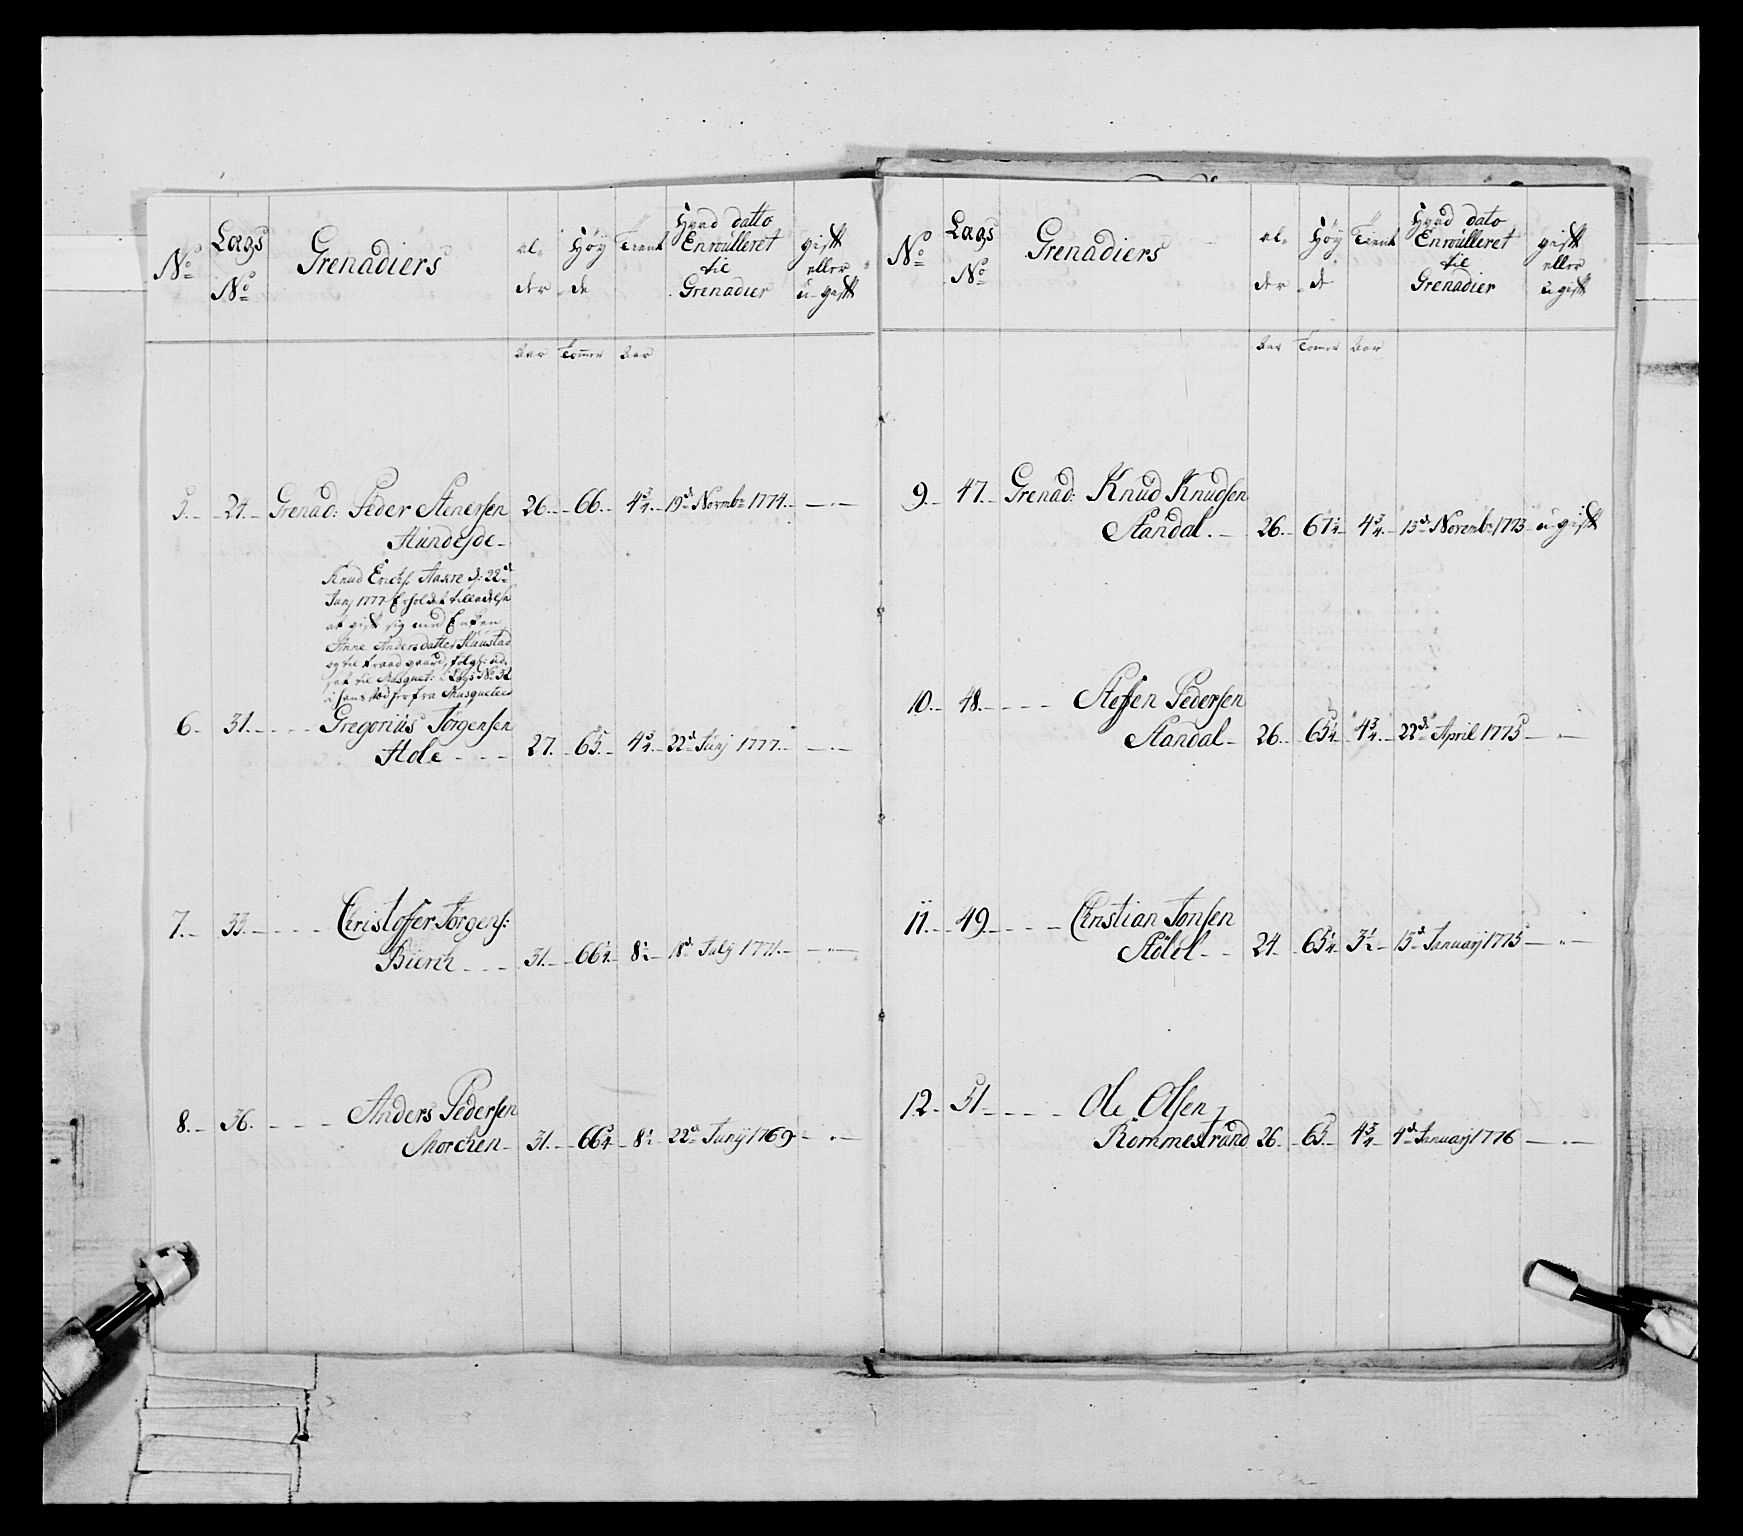 No
Lægs
No
Grenadiers
al-
der
Høy
de
Tient
Hvad datto
Enroulleret
til
Grenadier
gift
eller
u-gift
Aar Tommer Aar
5. 24. Grenad: Peder Stenersen 26. 66. 4 3/4. 19de Novembr 1774. — " —
Knud Erichs. Aasre d: 22de
Junj 1777 Erholdet tilladelse
at gift sig med Enken
Anne Andersdatter
i hans stæd her fra Musqueteer
6. 31. Gregorius Jørgensen
Hole 27. 65. 4 3/4. 22de Junj 1777. — " —
7. 33. Christoffer Jørgens:
Bierch 31. 66 1/4. 8 1/2 18de July 1771. — " —
8. 36. Anders Pedersen
Morchen 31. 66 3/4 8 1/2 22de Junij 1769 — " —
No
Lægs
No
Grenadiers
al-
der
Høy
de
Tient
Hvad dato
Enroulleret
til
Grenadier
gift
eller
u gift
Aar Tomer Aar
9. 47. Grenad: Knud Knudsen
Standal. 26. 67 1/4 4 3/4. 15de Novemb: 1773 u-gift
10. 48. Steffen Pedersen
Standal 26. 65 1/4. 4 3/4. 22de April 1775 — " —
11. 49. Christian Jonsen
24. 65 1/4 3 1/2 15de Januarij 1775 — " —
12. 51. Ole Olsen
Rommestrand 26. 65. 4 3/4 4de Januarij 1776 — " —